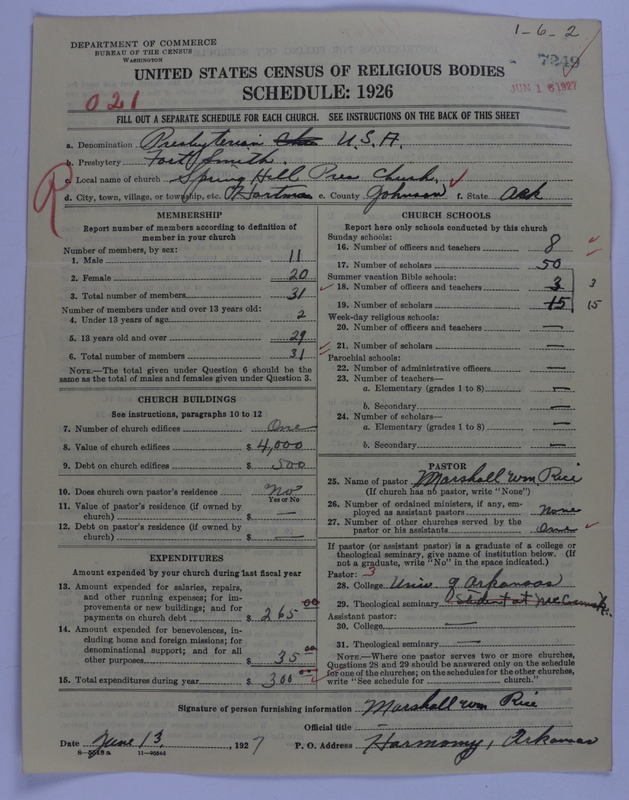 1-6-2
DEPARTMENT OF COMMERCE
BUREAU OF THE CENSUS
WASHINGTON
7249
JUN 16 1927
UNITED STATES CENSUS OF RELIGIOUS BODIES
SCHEDULE: 1926
021
FILL OUT A SEPARATE SCHEDULE FOR EACH CHURCH. SEE INSTRUCTIONS ON THE BACK OF THIS SHEET
a. Denomination Presbyterian U.S.A.
b. Presbytery Fort Smith.
c. Local name of church Spring Hill Pres Church.
d. City, town, village, or township, etc. Hartman e. County Johnson f. State Ark
R
MEMBERSHIP
Report number of members according to definition of
member in your church
Number of members, by sex:
1. Male 11
2. Female 20
3. Total number of members 31
Number of members under and over 13 years old:
4. Under 13 years of age 2
5. 13 years old and over 29
6. Total number of members 31
NOTE.—The total given under Question 6 should be the
same as the total of males and females given under Question 3.
CHURCH BUILDINGS
See instructions, paragraphs 10 to 12
7. Number of church edifices One
8. Value of church edifices $ 4,000
9. Debt on church edifices $ 500
10. Does church own pastor's residence No
Yes or No
11. Value of pastor's residence (if owned by
church) $ —
12. Debt on pastor's residence (if owned by
church) $ —
EXPENDITURES
Amount expended by your church during last fiscal year
13. Amount expended for salaries, repairs,
and other running expenses; for im-
provements or new buildings; and for
payments on church debt $ 265 00
14. Amount expended for benevolences, in-
cluding home and foreign missions; for
denominational support; and for all
other purposes $ 35 00
15. Total expenditures during year $ 300 00
CHURCH SCHOOLS
Report here only schools conducted by this church
Sunday schools:
16. Number of officers and teachers 8
17. Number of scholars 50
Summer vacation Bible schools:
18. Number of officers and teachers 3 3
19. Number of scholars 15 15
Week-day religious schools:
20. Number of officers and teachers —
21. Number of scholars —
Parochial schools:
22. Number of administrative officers —
23. Number of teachers—
a. Elementary (grades 1 to 8) —
b. Secondary —
24. Number of scholars—
a. Elementary (grades 1 to 8) —
b. Secondary —
PASTOR
25. Name of pastor Marshall Wm. Rice
(If church has no pastor, write "None")
26. Number of ordained ministers, if any, em-
ployed as assistant pastors None
27. Number of other churches served by the
pastor or his assistants One
If pastor (or assistant pastor) is a graduate of a college or
theological seminary, give name of institution below. (If
not a graduate, write "No" in the space indicated.)
Pastor: 3
28. College Univ of Arkansas
29. Theological seminary Student at McCormick.
Assistant pastor:
30. College —
31. Theological seminary —
NOTE.—Where one pastor serves two or more churches,
Questions 28 and 29 should be answered only on the schedule
for one of the churches; on the schedules for the other churches,
write "See schedule for church."
Signature of person furnishing information Marshall Wm Rice
Official title —
Date June 13, 1927 P. O. Address Harmony, Arkansas